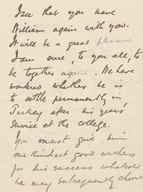 I see that you have
William again with you.
It will be a great pleasure
I am sure, to you all, to
be together again. We have
wondered whether he is
to settle permanently in
Turkey after his years'
service at the college.
You must give him
our kindest good wishes
for his success whatever
he may subsequently choose